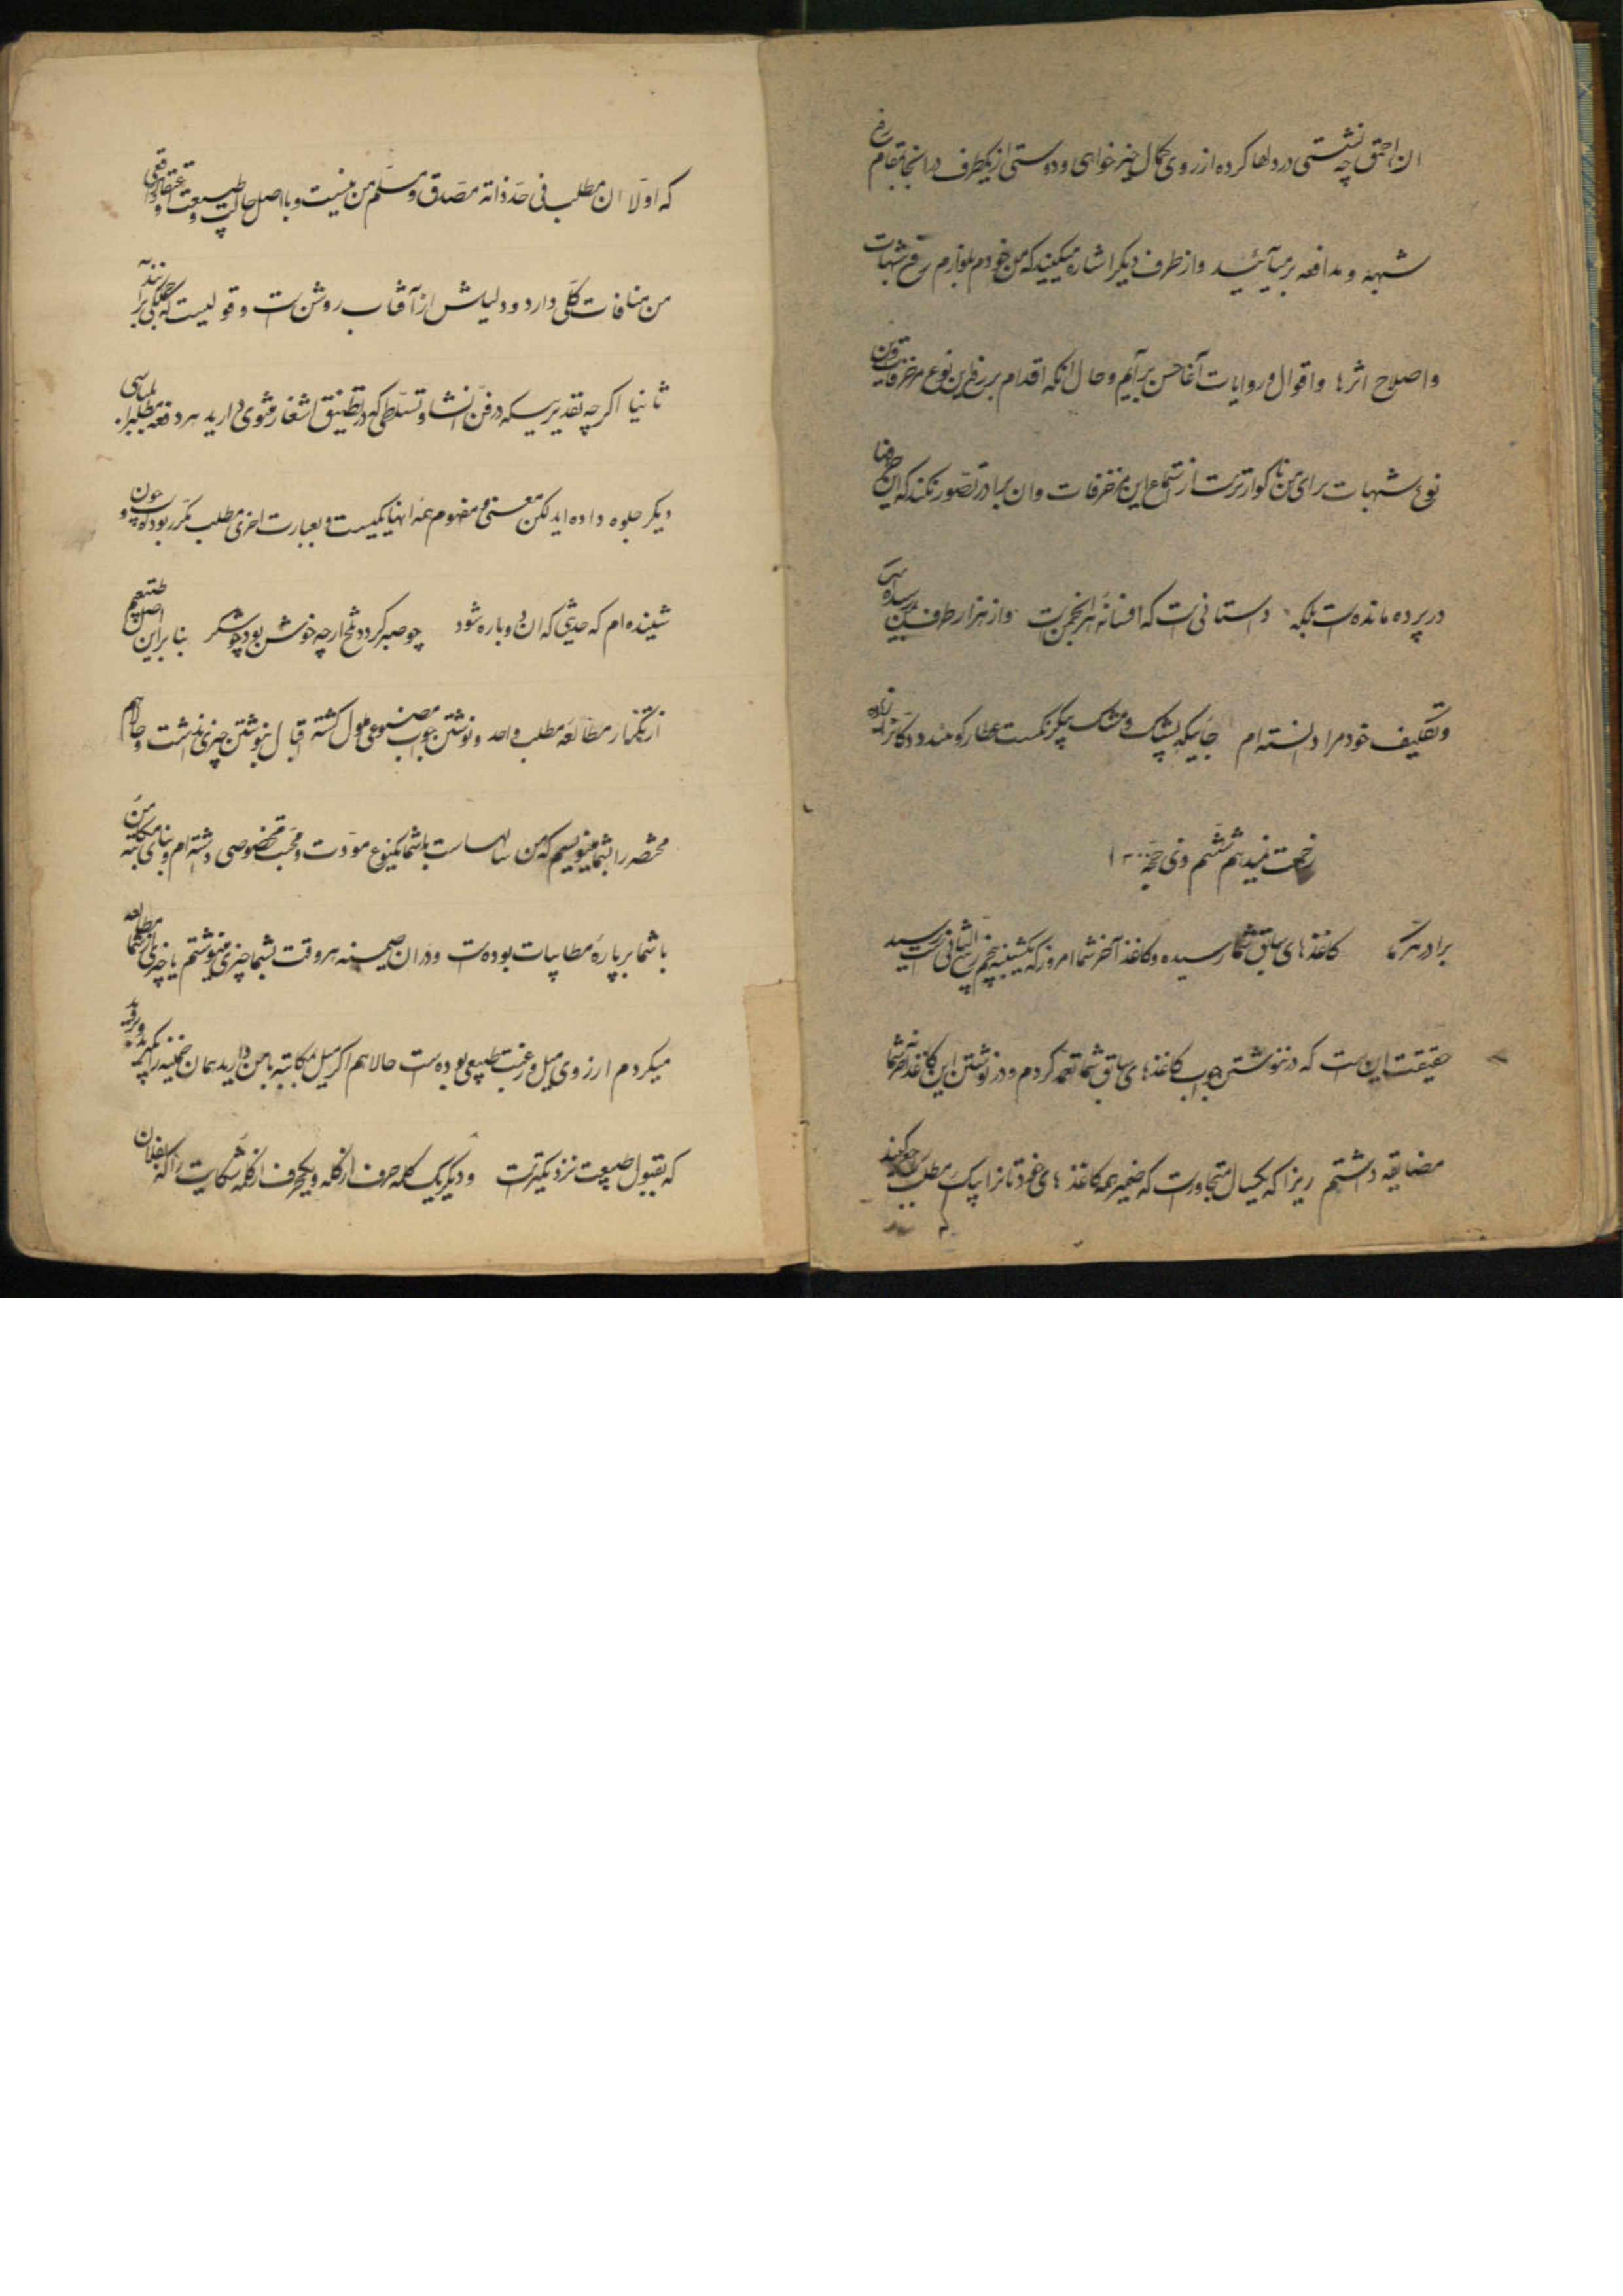 ان احمق چه نشستی در دلها کرده از روی کمال خیرخواهی و دوستی از یکطرف در انجا بمقام رفع
شبهه و مدافعه برمیآئید و از طرف دیگر اشاره میکنید که من خودم بلوازم رفع شبهات
و اصلاح اثرها و اقوال و روایات آغا حسن برآیم و حال آنکه اقدام بر رفع این نوع مزخرفات و این
نوع شبهات برای من ناگوارتر است از استماع این مزخرفات و ان برادر تصور نکند که این
در پرده مانده است بلکه داستانی است که افسانهٔ هر انجمن است و از هزار طرف بمن رسیده است
و تکلیف خود مرا دانسته ام جائیکه پشک و مشک یکرنگست عطار کو ببندد دکانرا زیاده
زحمت نمیدهم ششم ذی حجه ۱۳۰۰
برادر مکرما کاغذهای سابق شما رسیده و کاغذ آخر شما امروز که یکشنبه پنجم ربیع الثانی است رسید
حقیقت این است که در ننوشتن جواب کاغذهای سابق شما تعمد کردم و در نوشتن این کاغذ آخر شما
مضایقه داشتم زیرا که یکسال متجاوز است که ضمیر همه کاغذهای خودتانرا بیک مطلب رجوع میکنید
که اولا ان مطلب فی حد ذاته مصدق و مسلم من نیست و با اصل حالت و طبیعت و اعتقاد واقعی
من منافات کلی دارد و دلیلش از آفتاب روشن است و قولیست که جملگی برانند
ثانیا اگرچه بقدریکه در فن انشا و تسلطی که در تطبیق اشعار مثنوی دارید هر دفعه مطلبرا بلباسی
دیگر جلوه داده اید لکن معنی و مفهوم همه انها یکیست و بعبارت اخری مطلب مکرر بوده و چون
شنیده ام که حدیثی که ان دوباره شود چو صبر گردد تلخ ارچه خوش بود چو شکر بنابراین اصل طبعم
از تکرار مطالعه مطلب واحد و نوشتن جواب مصنوعی ملول گشته اقبال بنوشتن چیزی نداشت و حالا هم
مختصر را بشما مینویسم که من سالهاست با شما یکنوع مودت و محبت مخصوصی داشته ام و بنای مکاتبه من
با شما بر پارهٔ مطایبات بوده است و در ان ضمینه هر وقت بشما چیزی مینوشتم یا چیزی از شما مطالعه
میکردم از روی میل و رغبت طبیعی بوده است حالا هم اگر میل مکاتبه با من دارید همان ضمینه را بگیرید
که بقبول طبیعت نزدیکتر است و دیگر یک کلمه حرف از گله و یکحرف از گله شکایت را که بفلان